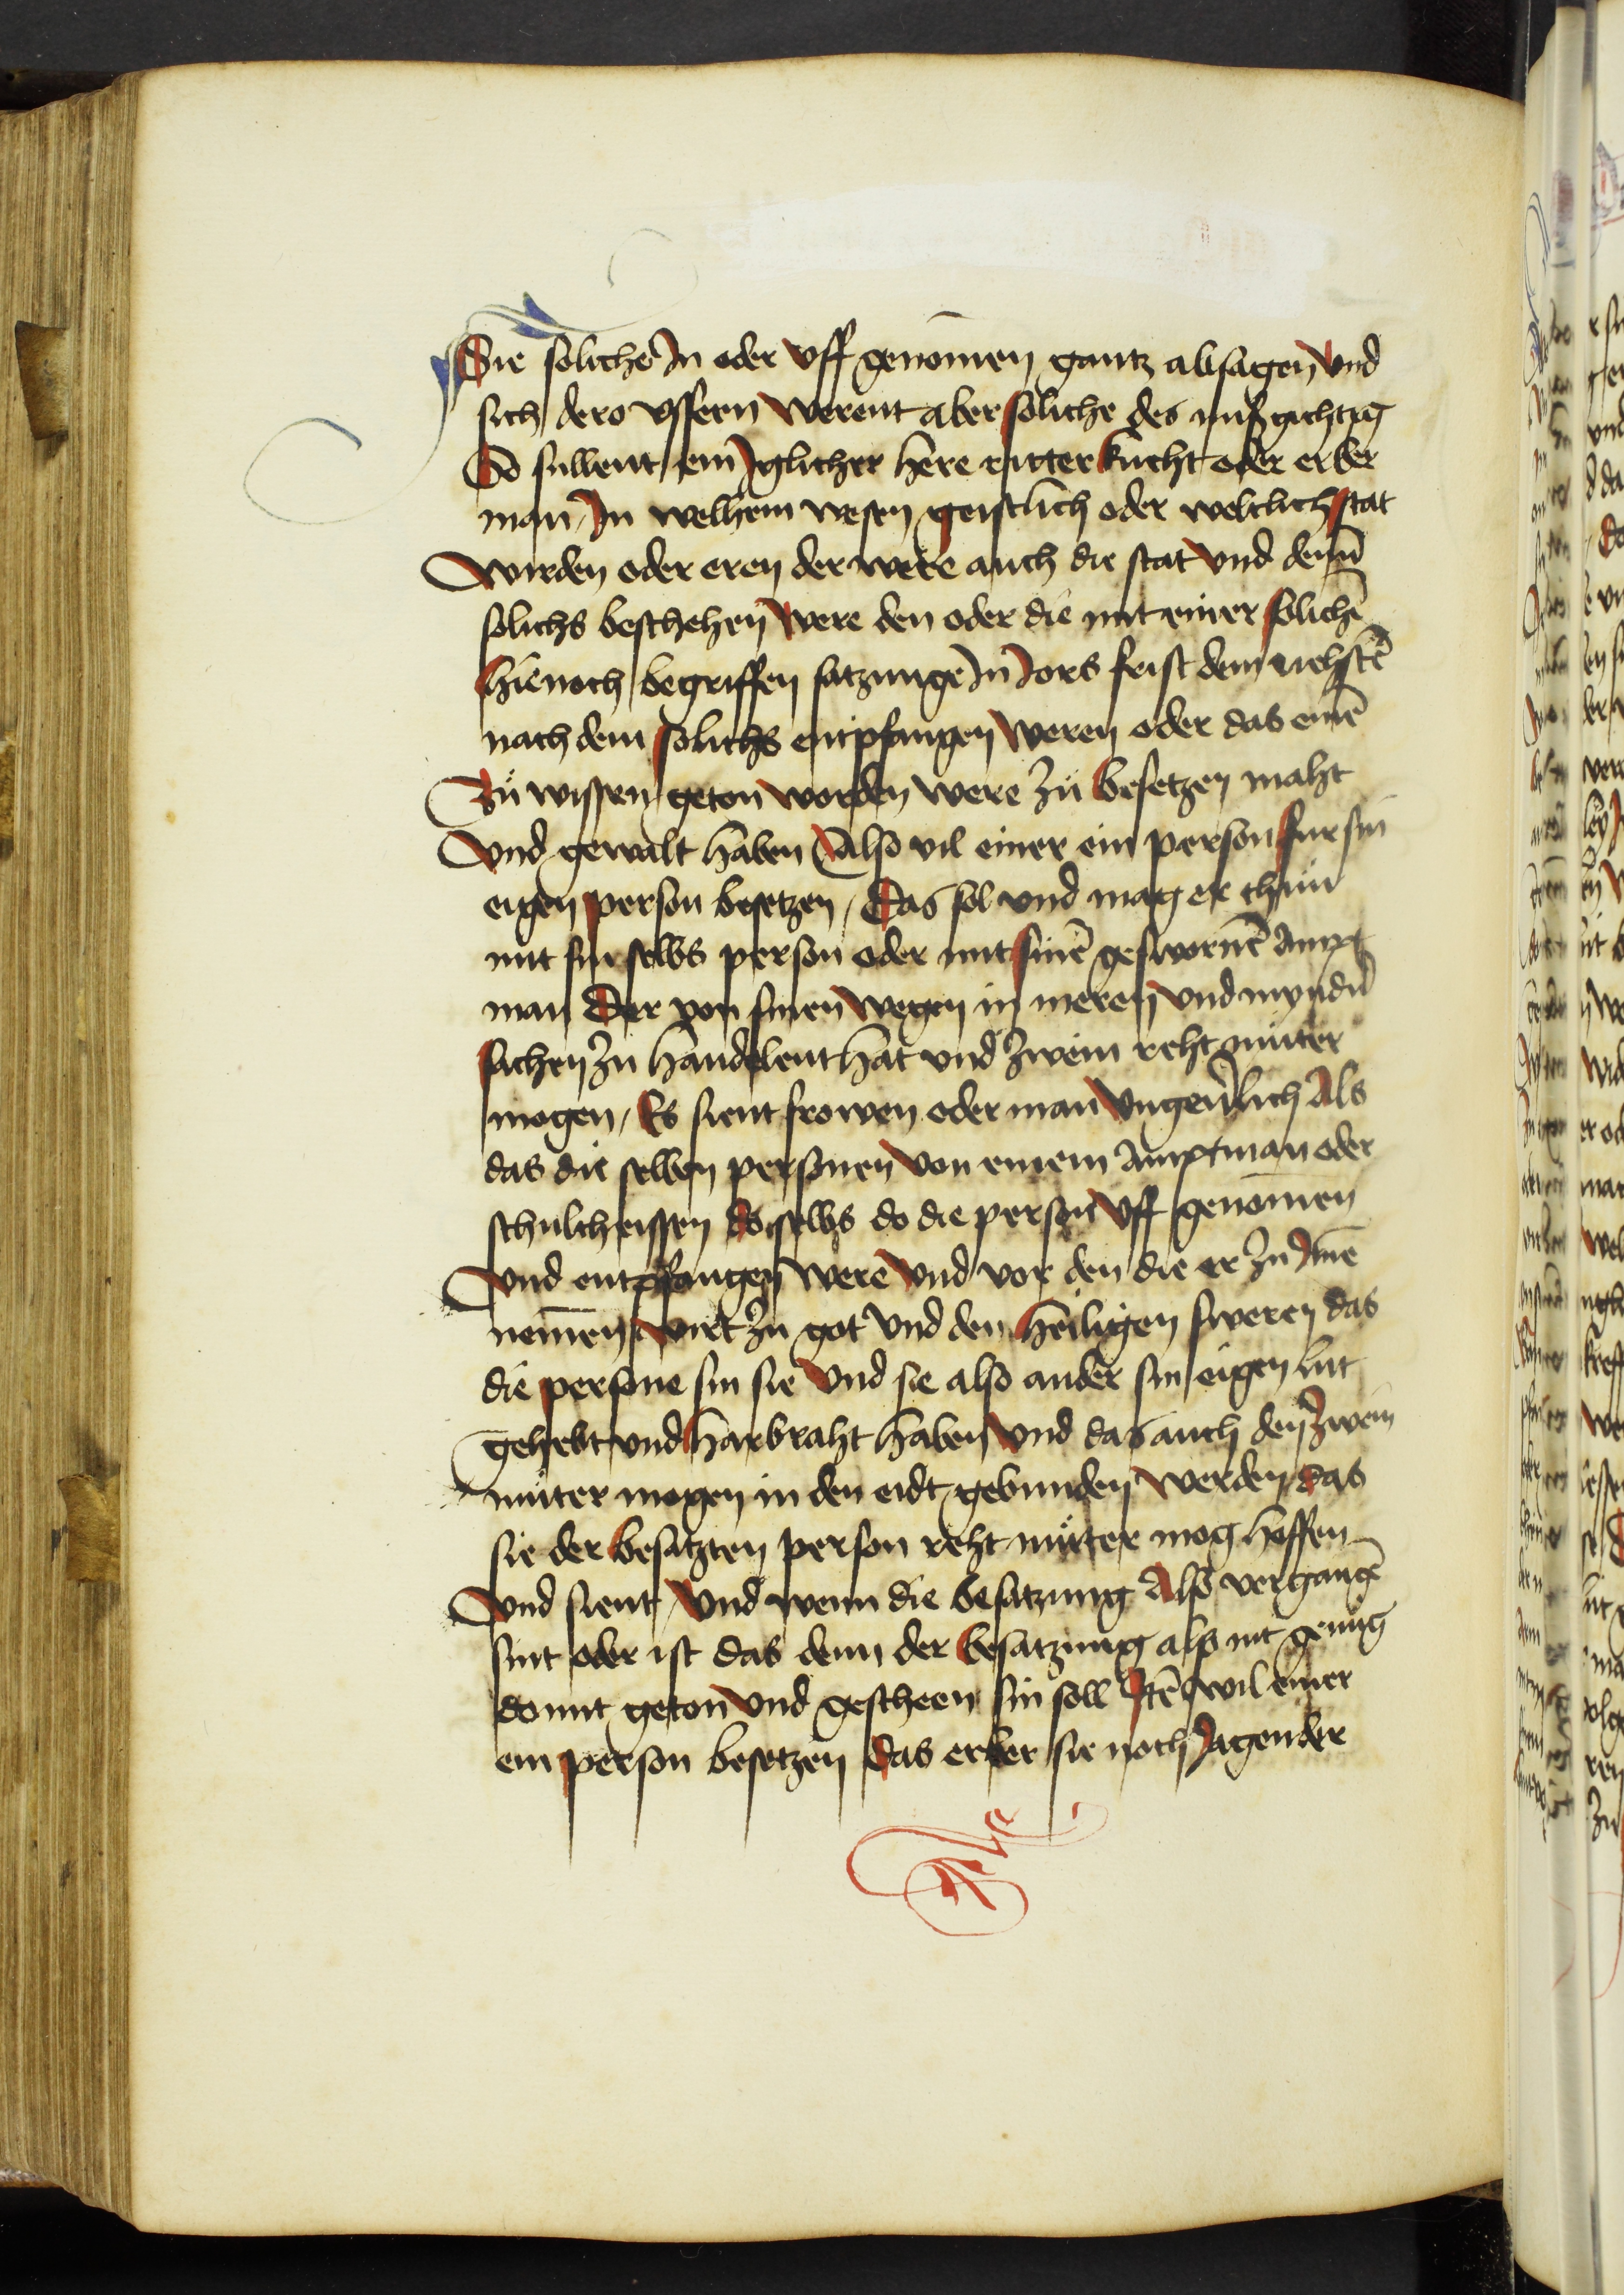 Die soliche In oder vff genomen gantz absagen vnd
sich dero vssern werent aber soliche des nitß gichtig
So sullent ein Iglicher here ritter knecht oder erber
man In welhem wesen geistlich oder weltlich stat
wirden oder eren der were auch die stat vnd denn
solichs beschehen were den oder die mit einer solichē
hie noch begriffen satzunge In Jors frist dem nehstē
nach dem solichs entpfangen weren oder das eine
Zů wissen geton worden were zů besetzen maht
vnd gewalt haben Also vil einer ein person fur sin
eigen person besetzen / Das sol vnd mag er thun
mit sin selbs person oder mit sinē geswornē ampt
man Der von sinen wegen in meren vnd myndn
sachen zu handelent hat vnd zwein reht můter
mogen / Es sient frowen oder man vngeuerlich Als
das die selben personen von einem amptman oder
schultheissen doselbs do die person vff genomen
vnd entpfangen were vnd vor den die er zu Ime
nemen wirt zu got vnd den heiligen sweren das
die persone sin sie vnd sie also ander sin eigen lut
gehebt vnd harbraht haben vnd das auch den zwein
můter mogen in den eidt gebunden werden das
sie der besatzten person reht můter mog hoffen
vnd sient / vnd wenn die besatzung Also vergangē
sint oder ist das denn der besatzung also mt genůg
do mit geton vnd gescheen sin soll Itē wil einer
ein person besetzen das er ber sie noch Jagendre